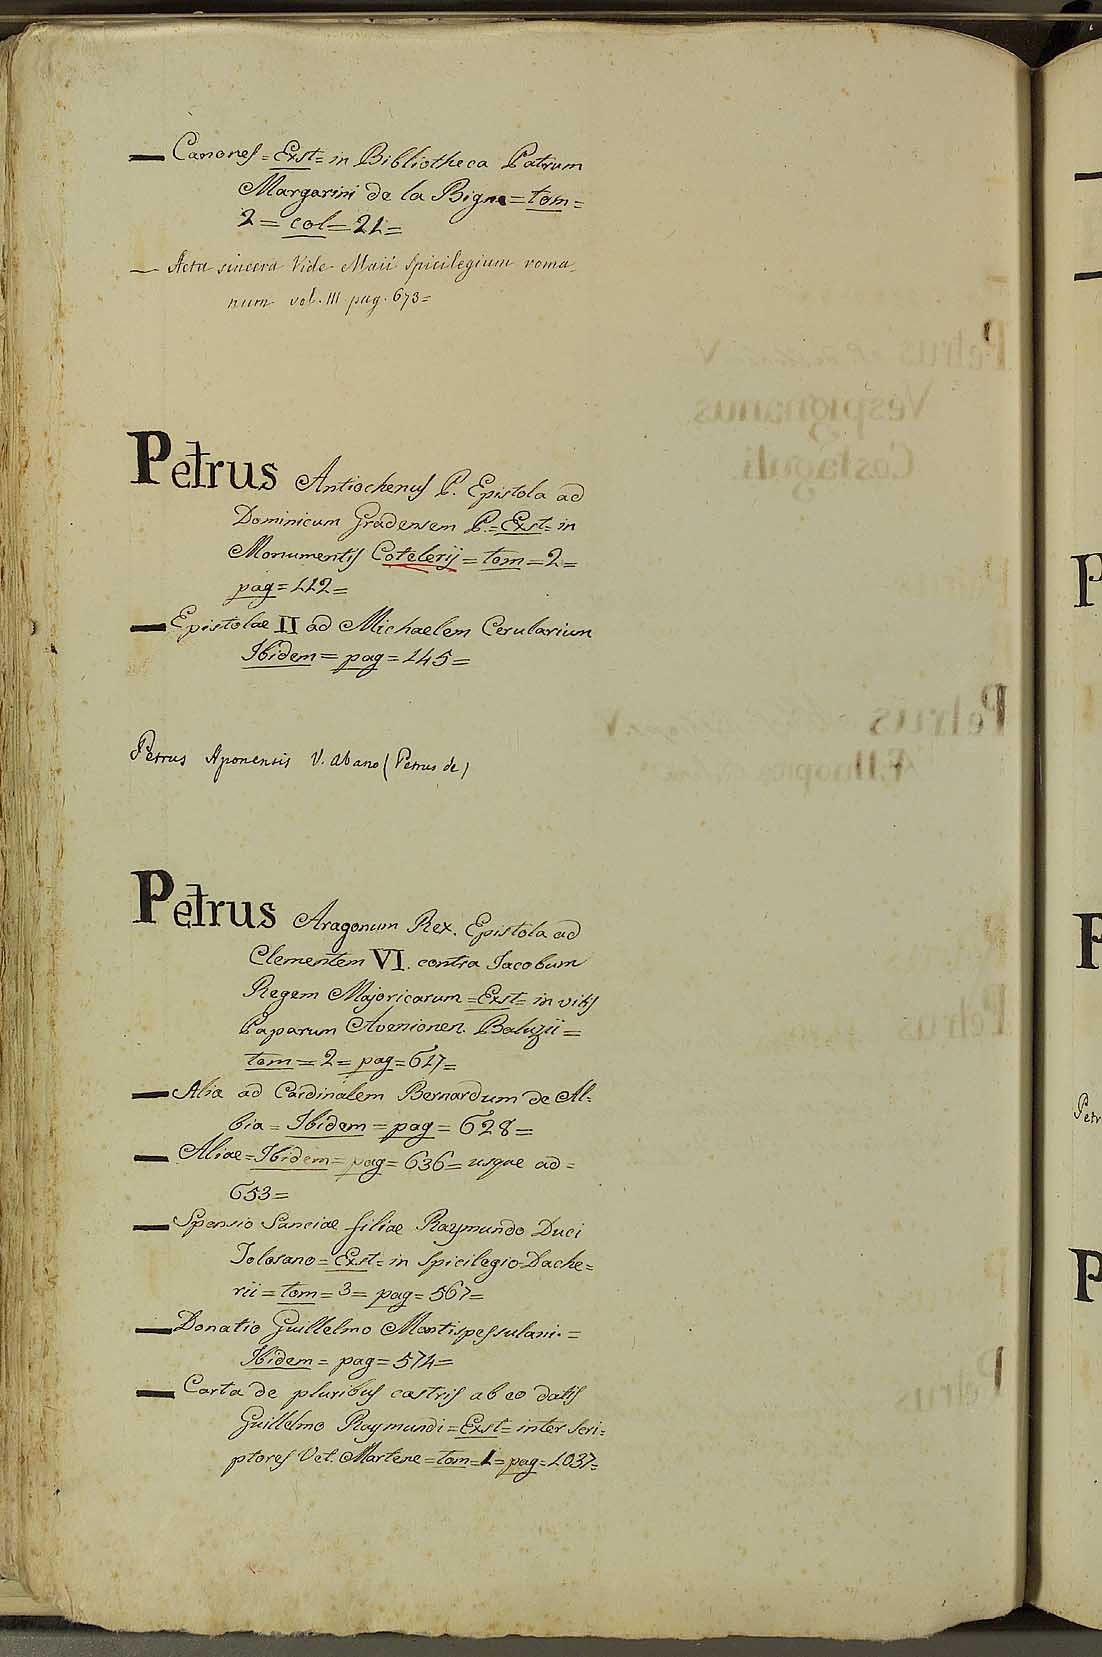 — Canones = Exst = in Bibliotheca Patrum
Margarini de la Bigne = tom =
2 = col = 21 =
— Acta sincera Vide Maii Spicilegium roma
num vol. III pag. 673 =
Petrus Antiochenus P. Epistola ad
Dominicum Gradensem P. = Exst = in
Monumentis Cotelerij = tom = 2 =
pag = 112 =
— Epistolae II ad Michaelem Cerularium
Ibidem = pag = 145 =
Petrus Aponensis V. Abano (Petrus de)
Petrus Aragonum Rex. Epistola ad
Clementem VI. contra Jacobum
Regem Majoricarum = Exst = in vitis
Paparum Avenionen. Baluzii =
tom = 2 = pag = 617 =
— Alia ad Cardinalem Bernardum de Al=
bia = Ibidem = pag = 628 =
— Aliae = Ibidem = pag = 636 = usque ad =
653 =
— Sponsio Sanciae filiae Raymundo Duci
Tolosano = Exst = in Spicilegio Dache=
rii = tom = 3 = pag = 567 =
— Donatio Guillelmo Montispessulani. =
Ibidem = pag = 574 =
— Carta de pluribus castris ab eo datis
Guillelmo Raymundi = Exst = inter Scri=
ptores Vet. Martene = tom = 1 = pag = 1037 =
P
P
Petr
P